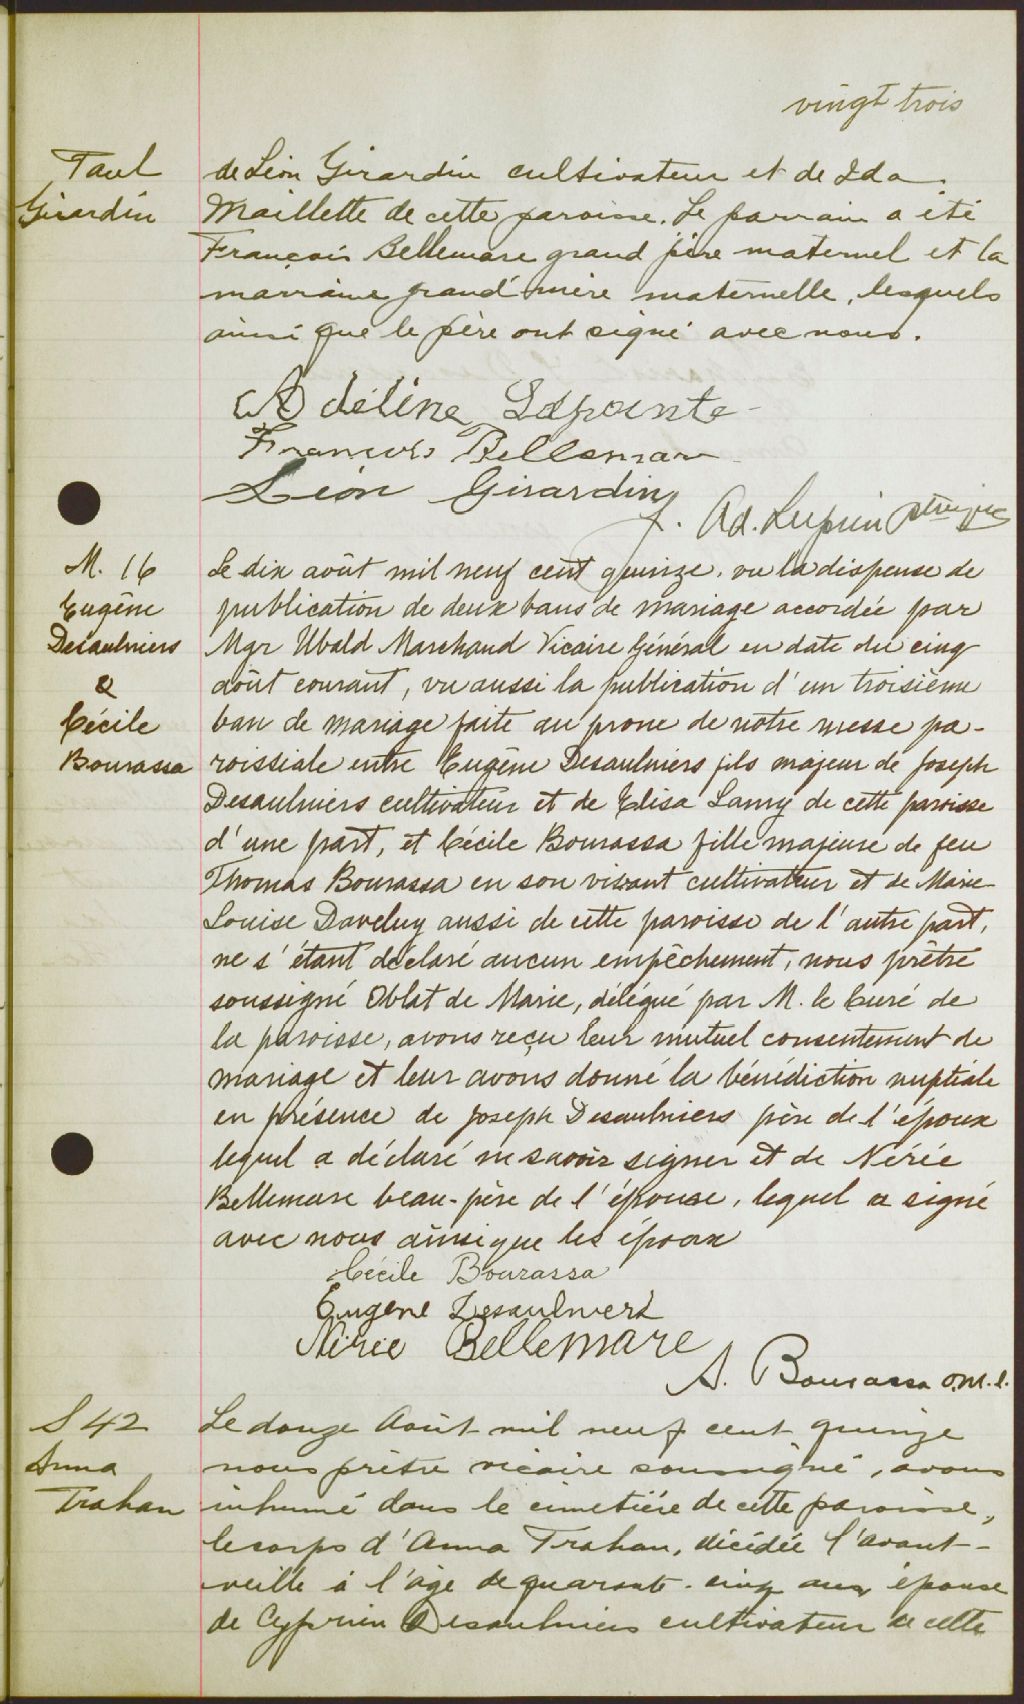 vingt trois
Paul
Girardin
de Léon Girardin cultivateur et de Ida
Maillette de cette paroisse. Le parrain a été
François Bellemare grand père maternel et la
marraine grand' mère maternelle, lesquels
ainsi que le père ont signé avec nous.
Adéline Lapointe
François Bellemare
Léon Girardin
Ad. Lupien ptre vic
M. 16
Eugène
Desaulniers
&
Cécile
Bourassa
Le dix août mil neuf cent quinze, vu la dispense de
publication de deux bans de mariage accordée par
Mgr Ubald Marchand Vicaire Général en date du cinq
août courant, vu aussi la publication d'un troisième
ban de mariage faite au prone de notre messe pa-
roissiale entre Eugène Desaulniers fils majeur de Joseph
Desaulniers cultivateur et de Elisa Lamy de cette paroisse
d'une part, et Cécile Bourassa fille majeure de feu
Thomas Bourassa en son vivant cultivateur et de Marie-
Louise Daveluy aussi de cette paroisse de l'autre part,
ne s'étant déclaré aucun empêchement, nous prêtre
soussigné Oblat de Marie, délégué par M. le Curé de
la paroisse, avons reçu leur mutuel consentement de
mariage et leur avons donné la bénédiction nuptiale
en présence de Joseph Desaulniers père de l'époux
lequel a déclaré ne savoir signer et de Nérée
Bellemare beau-père de l'épouse, lequel a signé
avec nous ainsi que les époux
Cécile Bourassa
Eugène Desaulniers
Nérée Bellemare
A. Bourassa O.M.I.
S 42
Anna
Trahan
Le douze Août mil neuf cent quinze
nous prêtre vicaire soussigné, avons
inhumé dans le cimetière de cette paroisse,
le corps d'Anna Trahan, décédée l'avant-
veille à l'âge de quarante-cinq ans épouse
de Cyprien Desaulniers cultivateur de cette